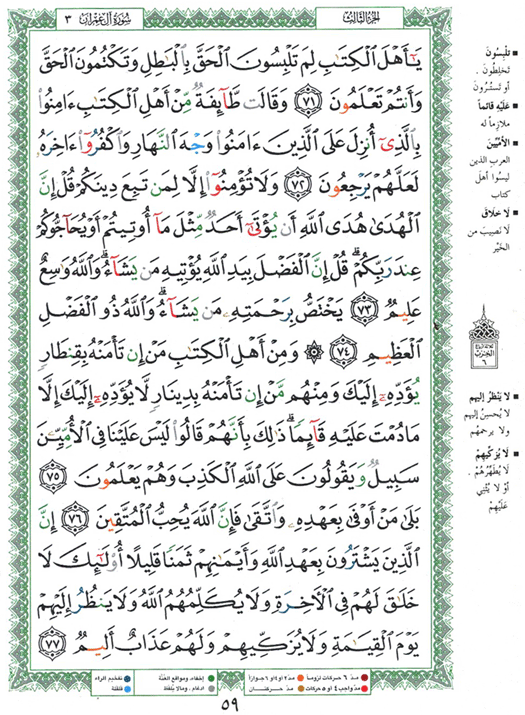 الجزء الثالث
سورة آل عمران ٣
يَـٰٓأَهْلَ ٱلْكِتَـٰبِ لِمَ تَلْبِسُونَ ٱلْحَقَّ بِٱلْبَـٰطِلِ وَتَكْتُمُونَ ٱلْحَقَّ
وَأَنتُمْ تَعْلَمُونَ ٧١ وَقَالَت طَّآئِفَةٌ مِّنْ أَهْلِ ٱلْكِتَـٰبِ ءَامِنُوا۟
بِٱلَّذِىٓ أُنزِلَ عَلَى ٱلَّذِينَ ءَامَنُوا۟ وَجْهَ ٱلنَّهَارِ وَٱكْفُرُوٓا۟ ءَاخِرَهُۥ
لَعَلَّهُمْ يَرْجِعُونَ ٧٢ وَلَا تُؤْمِنُوٓا۟ إِلَّا لِمَن تَبِعَ دِينَكُمْ قُلْ إِنَّ
ٱلْهُدَىٰ هُدَى ٱللَّهِ أَن يُؤْتَىٰٓ أَحَدٌ مِّثْلَ مَآ أُوتِيتُمْ أَوْ يُحَآجُّوكُمْ
عِندَ رَبِّكُمْ ۗ قُلْ إِنَّ ٱلْفَضْلَ بِيَدِ ٱللَّهِ يُؤْتِيهِ مَن يَشَآءُ ۗ وَٱللَّهُ وَٰسِعٌ
عَلِيمٌ ٧٣ يَخْتَصُّ بِرَحْمَتِهِۦ مَن يَشَآءُ ۗ وَٱللَّهُ ذُو ٱلْفَضْلِ
ٱلْعَظِيمِ ٧٤ ۞ وَمِنْ أَهْلِ ٱلْكِتَـٰبِ مَنْ إِن تَأْمَنْهُ بِقِنطَارٍ
يُؤَدِّهِۦٓ إِلَيْكَ وَمِنْهُم مَّنْ إِن تَأْمَنْهُ بِدِينَارٍ لَّا يُؤَدِّهِۦٓ إِلَيْكَ إِلَّا
مَا دُمْتَ عَلَيْهِ قَآئِمًا ۗ ذَٰلِكَ بِأَنَّهُمْ قَالُوا۟ لَيْسَ عَلَيْنَا فِى ٱلْأُمِّيِّـۧنَ
سَبِيلٌ وَيَقُولُونَ عَلَى ٱللَّهِ ٱلْكَذِبَ وَهُمْ يَعْلَمُونَ ٧٥
بَلَىٰ مَنْ أَوْفَىٰ بِعَهْدِهِۦ وَٱتَّقَىٰ فَإِنَّ ٱللَّهَ يُحِبُّ ٱلْمُتَّقِينَ ٧٦ إِنَّ
ٱلَّذِينَ يَشْتَرُونَ بِعَهْدِ ٱللَّهِ وَأَيْمَـٰنِهِمْ ثَمَنًا قَلِيلًا أُو۟لَـٰٓئِكَ لَا
خَلَـٰقَ لَهُمْ فِى ٱلْـَٔاخِرَةِ وَلَا يُكَلِّمُهُمُ ٱللَّهُ وَلَا يَنظُرُ إِلَيْهِمْ
يَوْمَ ٱلْقِيَـٰمَةِ وَلَا يُزَكِّيهِمْ وَلَهُمْ عَذَابٌ أَلِيمٌ ٧٧
تلبسون
تخلطون .
أو تسترون
عليه قائماً
ملازماً له
الأميين
العرب الذين
ليسوا أهل
كتاب
لا خلاق
لا نصيب من
الخير
الحزب
٦
لا ينظر إليهم
لا يُحسِنُ إليهم
ولا يرحمهم
لا يزكيهم
لا يطهرهم .
أو لا يثني
عليهم
مد ٦ حركات لزوماً مد ٢ أو ٤ أو ٦ جوازاً
إخفاء، ومواقع الغنة
تفخيم الراء
مد واجب ٤ أو ٥ حركات مد حركتان
إدغام ، ومالا يُلفظ
قلقلة
٥٩